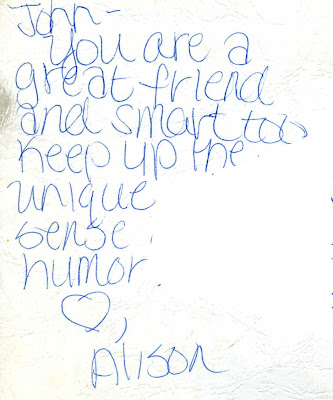 John-
You are a
great friend
and smart too
Keep up the
unique
sense
humor
♡,
Alison